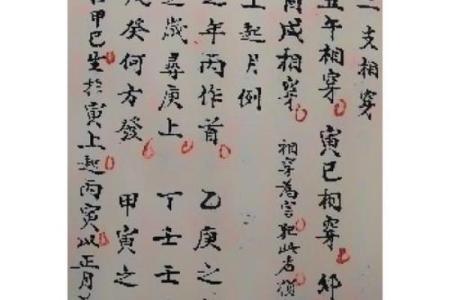 二支相穿
丑午相穿 寅巳相穿 卯
酉戌相穿 相穿為害犯此者
上起月例
之年丙作首 乙庚之
之歲尋庚上 丁壬壬
癸何方發 甲寅之
甲巳生於寅上起丙寅以正月